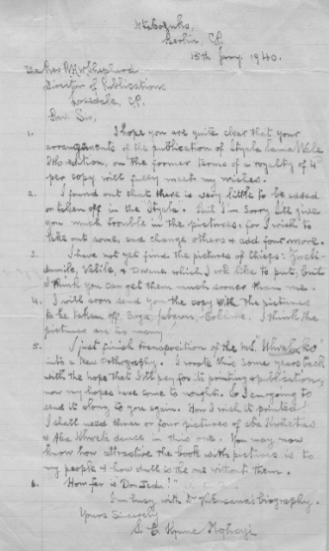 Ntabozuko,
Berlin, C.P.
15th Jany 1940.
The Rev. R.H.W. Shepherd
Director of Publications
Lovedale, C.P.
Dear Sir,
1. I hope you are quite clear that your
arrangements of the publication of Ityala Lama Wele
7th edition, on the former terms of a royalty of 4d
per copy will fully meet my wishes.
2. I found out that there is very little to be added
or taken off in the Ityala. But I'm sorry I'll give
you much trouble in the pictures, for I wish to
take out some, and change others & add four more.
3. I have not yet find the pictures of chiefs:
Velile, & Dwane which I'd like to put, but
I think you can get them much sooner than me.
4. I will soon send you the copy with the pictures
to be taken off. I think the
pictures are so many.
5. I just finish transposition of the
into a New Orthography. I wrote this some years back
with the hope that I'll pay for its printing & publication,
now my hopes have come to nought. So I am going to
send it along to you again. How I wish it printed
I shall need three or four pictures of aba Kwetha
& Aba dance in this one. You may now
know how attractive the book with pictures is to
my people & how dull is the one without them.
6. How far is Don Jadu?
I'm busy with Dr biography.
Yours Sincerely
S. E. Krune Mqhayi